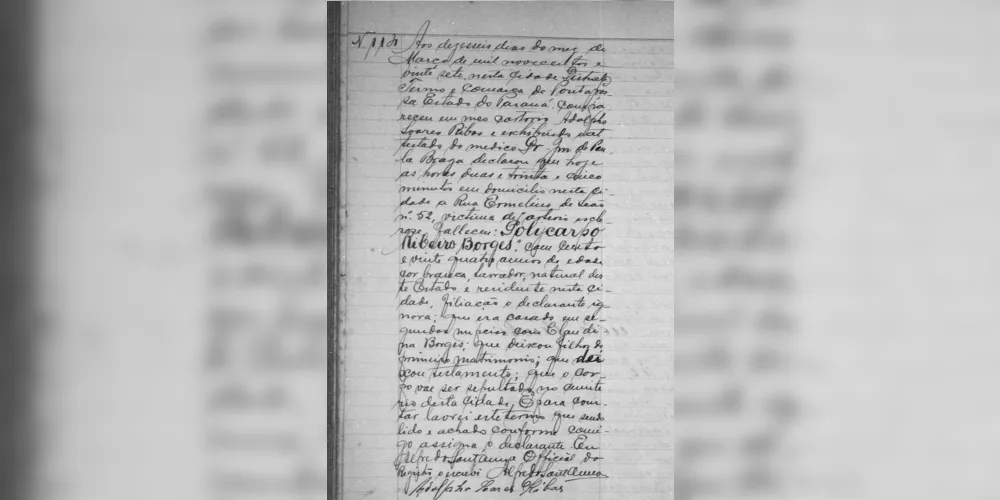 Nº 113 Aos dezeseis dias do mez de
Março de mil novecentos e
vinte sete, nesta cidade Districto
Termo e Comarca de Ponta Gros
sa Estado do Paraná, compa
receu em meo cartorio Adolpho
Soares Ribas e exhibindo o at
testado do medico Dr. de Pau
la Braga declarou que hoje
as horas duas e trinta e cinco
minutos em domicilio nesta ci-
dade a Rua Ermelino de Leão
nº 52, victima de arterio escle
rose, falleceu: Polycarpo
Ribeiro Borges: com cento
e vinte quatro annos de edade
cor branca, lavrador, natural des
te Estado e residente nesta ci-
dade, filiação o declarante ig-
nora; que era casado em se-
gundas nupcias com Claudi
na Borges; que deixou filhos do
primeiro matrimonio; que dei
xou testamento; que o cor-
po vae ser sepultado no cemite
rio desta cidade. E para cons-
tar lavrei este termo que sendo
lido e achado conforme comi-
go assigna o declarante. Eu
Alfredo Sant'Anna Official do
Registro o escrevi Alfredo Sant'Anna
Adolpho Soares Ribas